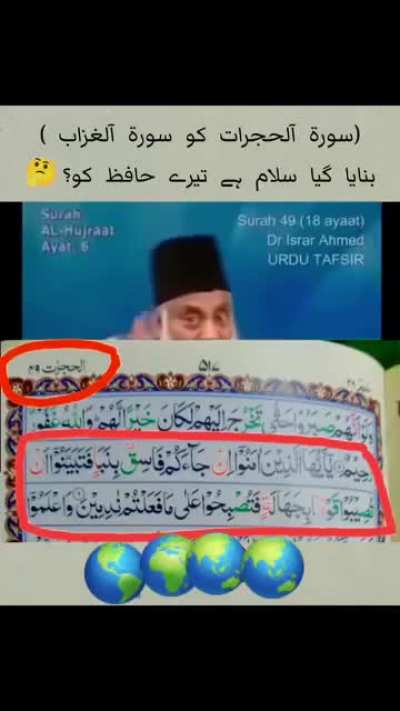 (سورة آلحجرات کو سورة آلغزاب )
بنایا گیا سلام ہے تیرے حافظ کو؟ 🤔
Surah
AL-Hujraat
Ayat. 6
Surah 49 (18 ayaat)
Dr Israr Ahmed
URDU TAFSIR
الحجرٰت ٤٩
٥١٧
وَلَوْ اَنَّهُمْ صَبَرُوْا حَتّٰى تَخْرُجَ اِلَيْهِمْ لَكَانَ خَيْرًا لَّهُمْ وَاللّٰهُ غَفُوْرٌ
رَّحِيْمٌ يٰۤاَيُّهَا الَّذِيْنَ اٰمَنُوْۤا اِنْ جَآءَكُمْ فَاسِقٌۢ بِنَبَاٍ فَتَبَيَّنُوْۤا اَنْ
تُصِيْبُوْا قَوْمًۢا بِجَهَالَةٍ فَتُصْبِحُوْا عَلٰى مَا فَعَلْتُمْ نٰدِمِيْنَ وَاعْلَمُوْۤا